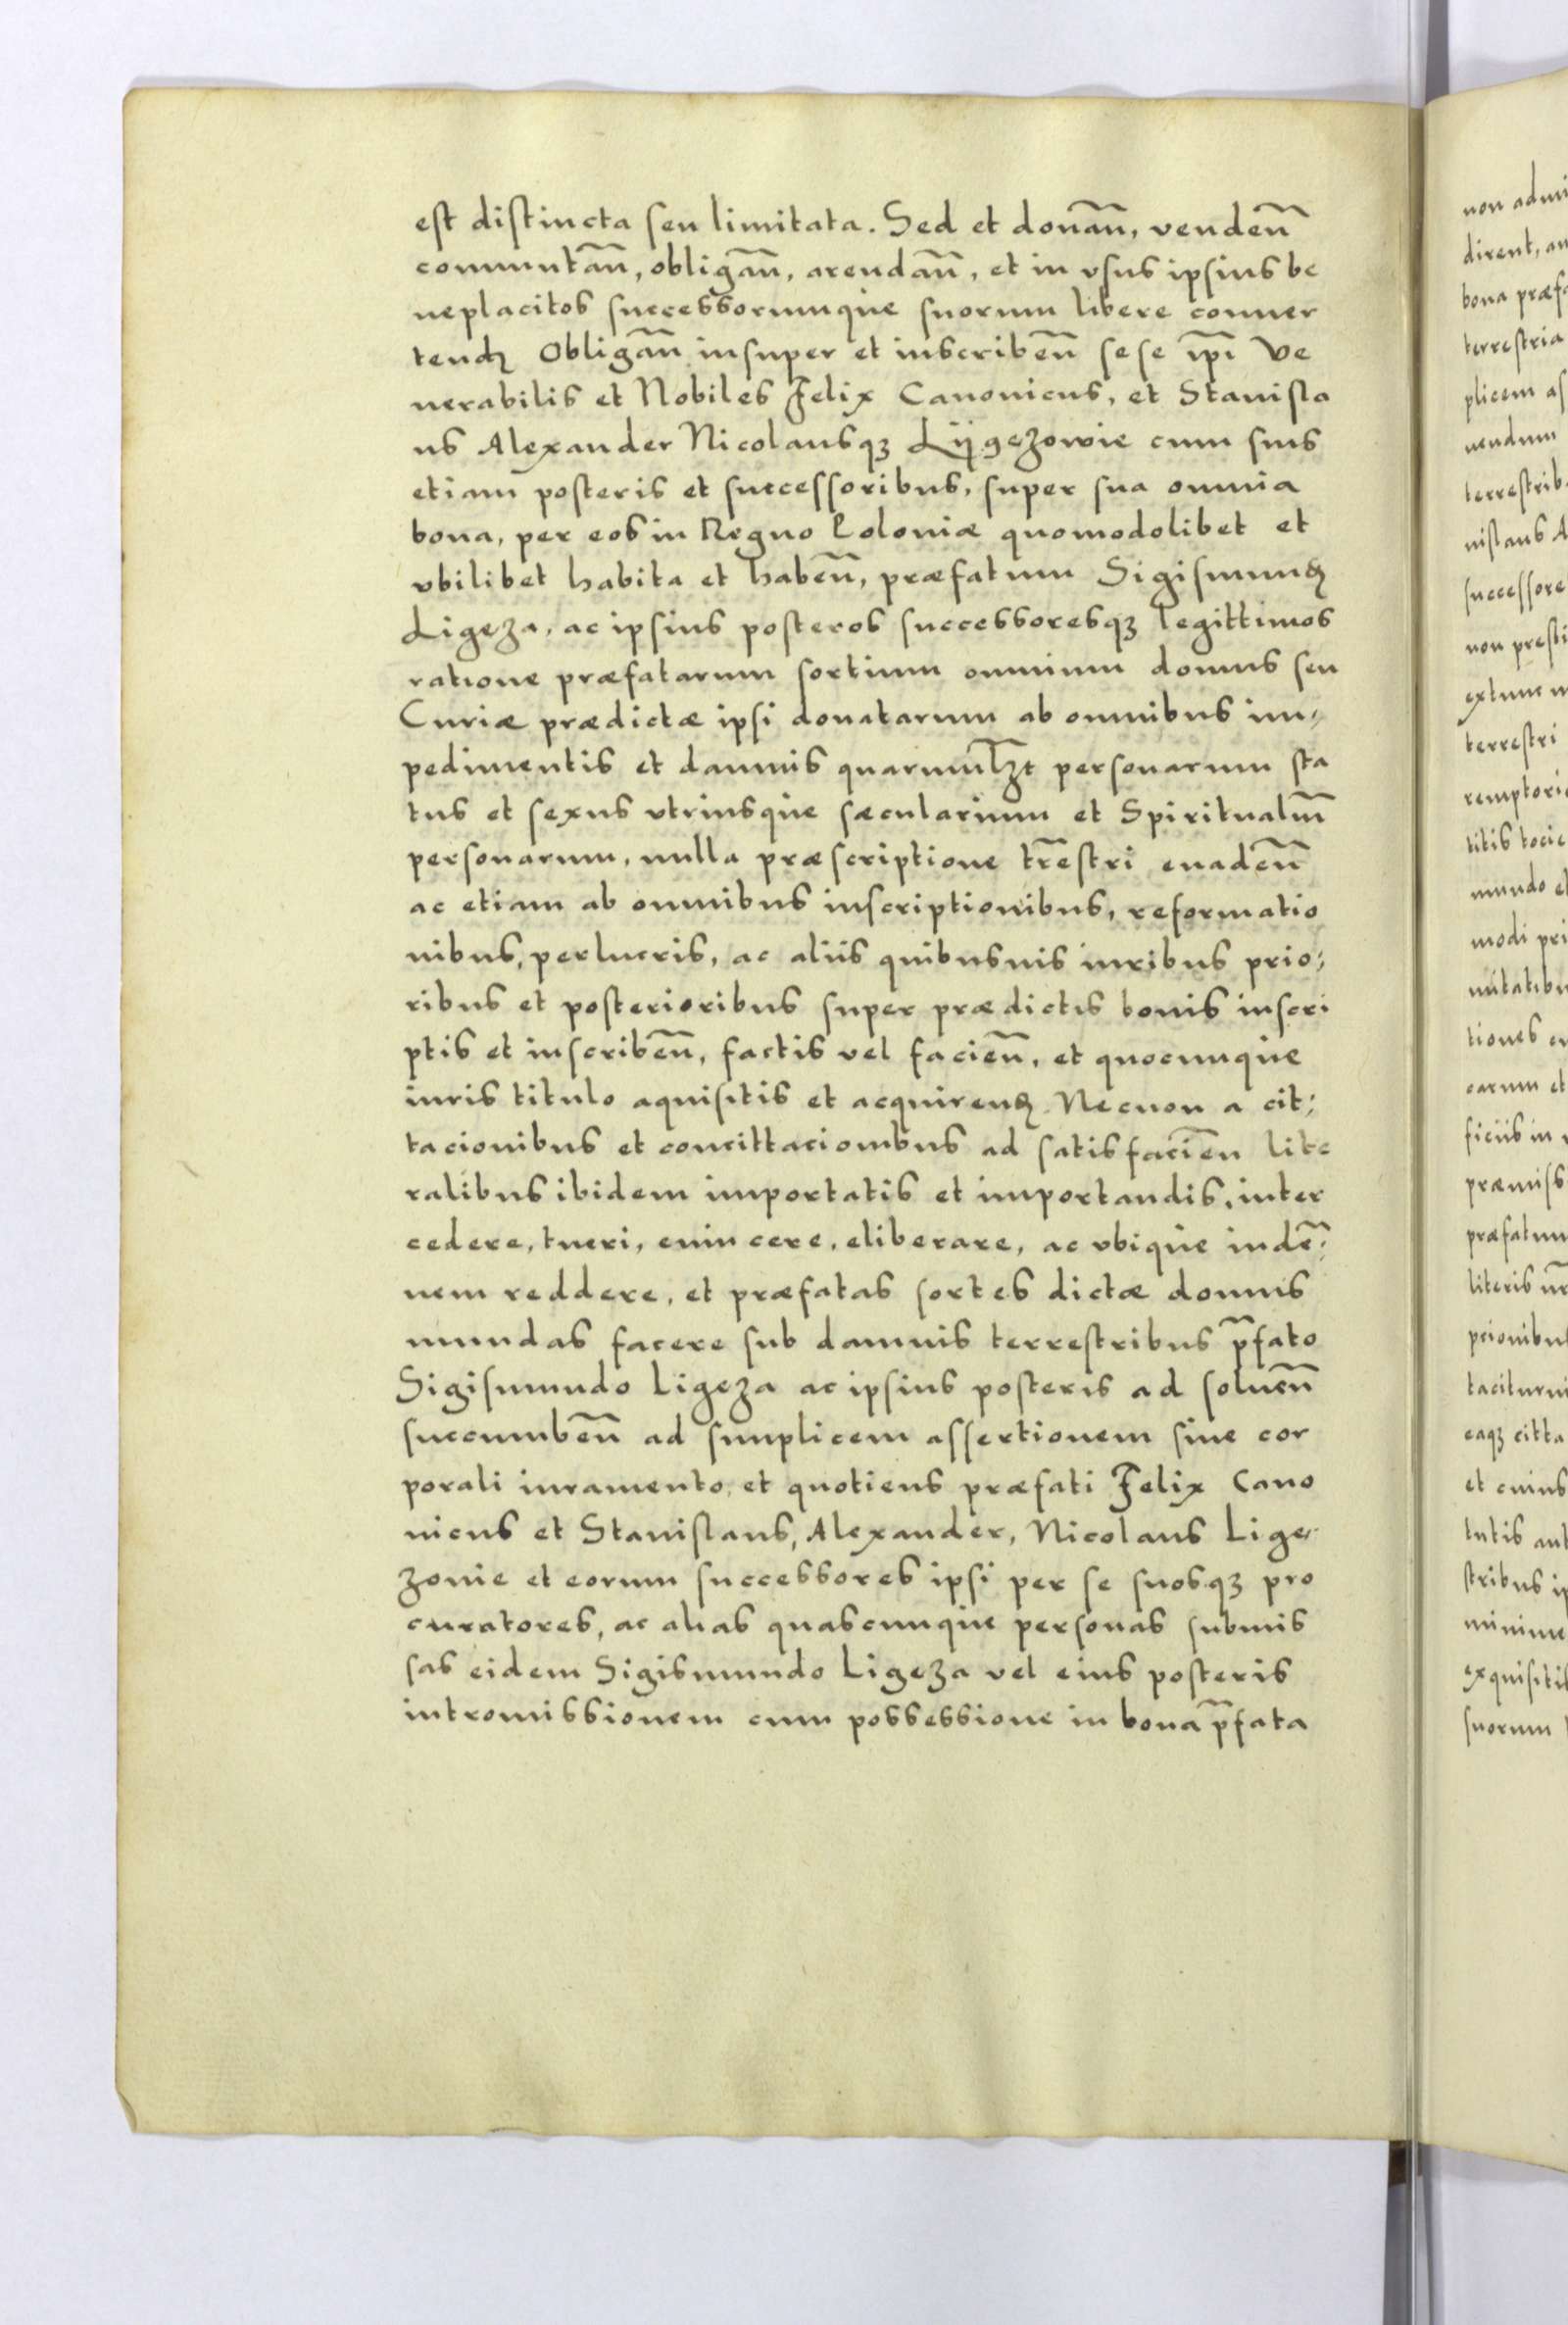 est distincta seu limitata. Sed et donãn, vendeñ
commutãn, obligãn, arendãn, et in vsus ipsius be
neplacitos successorumque suorum libere conuer
tend Obligãn insuper et inscribeñ sese ip̃i Ve
nerabilis et Nobiles Felix Canonicus, et Stanisla
us Alexander Nicolausqȝ Lÿgęzowie cum suis
etiam posteris et successoribus, super sua omnia
bona, per eos in Regno Poloniæ quomodolibet et
vbilibet habita et habeñ, præfatum Sigismund
Ligęza, ac ipsius posteros successoresqȝ legittimos
ratione præfatarum sortium omnium domus seu
Curiæ prædictæ ipsi donatarum ab omnibus im⸗
pedimentis et damnis quarumlȝt personarum sta
tus et sexus vtriusque sæcularium et Spiritualiũ
personarum, nulla præscriptione tr̃estri euadeñ
ac etiam ab omnibus inscriptionibus, reformatio
nibus, perlucris, ac aliis quibusuis iuribus prio⸗
ribus et posterioribus super prædictis bonis inscri
ptis et inscribeñ, factis vel facieñ, et quocunque
iuris titulo aquisitis et acquirend. Necnon a cit⸗
tacionibus et concittacionibus ad satisfacieñ lite
ralibus ibidem importatis et importandis, inter
cedere, tueri, euincere, eliberare, ac vbique indẽ⸗
nem reddere, et præfatas sortes dictæ domus
mundas facere sub damnis terrestribus p̃fato
Sigismundo Ligęza ac ipsius posteris ad solueñ
succumbeñ ad simplicem assertionem sine cor
porali iuramento, et quotiens præfati Felix Cano
nicus et Stanislaus, Alexander, Nicolaus Lige⸗
zouie et eorum successores ipsi per se suosqȝ pro
curatores, ac alias quascunque personas submis
sas eidem Sigismundo Ligęza vel eius posteris
intromissionem cum possessione in bona p̃fata
non admi
dirent, au
bona præfa
terrestria
plicem as
uendum
terrestrib
nislaus A
successore
non presti
extunc
terrestri
remptori
titis tocie
mundo et
modi pri
nitatibu
tiones
earum et
ficiis in
præmiss
præfatum
literis nr̃
pcionibus
taciturni
eaqȝ citta
et cuius
tutis aut
stribus ip
minime
exquisitis
suorum